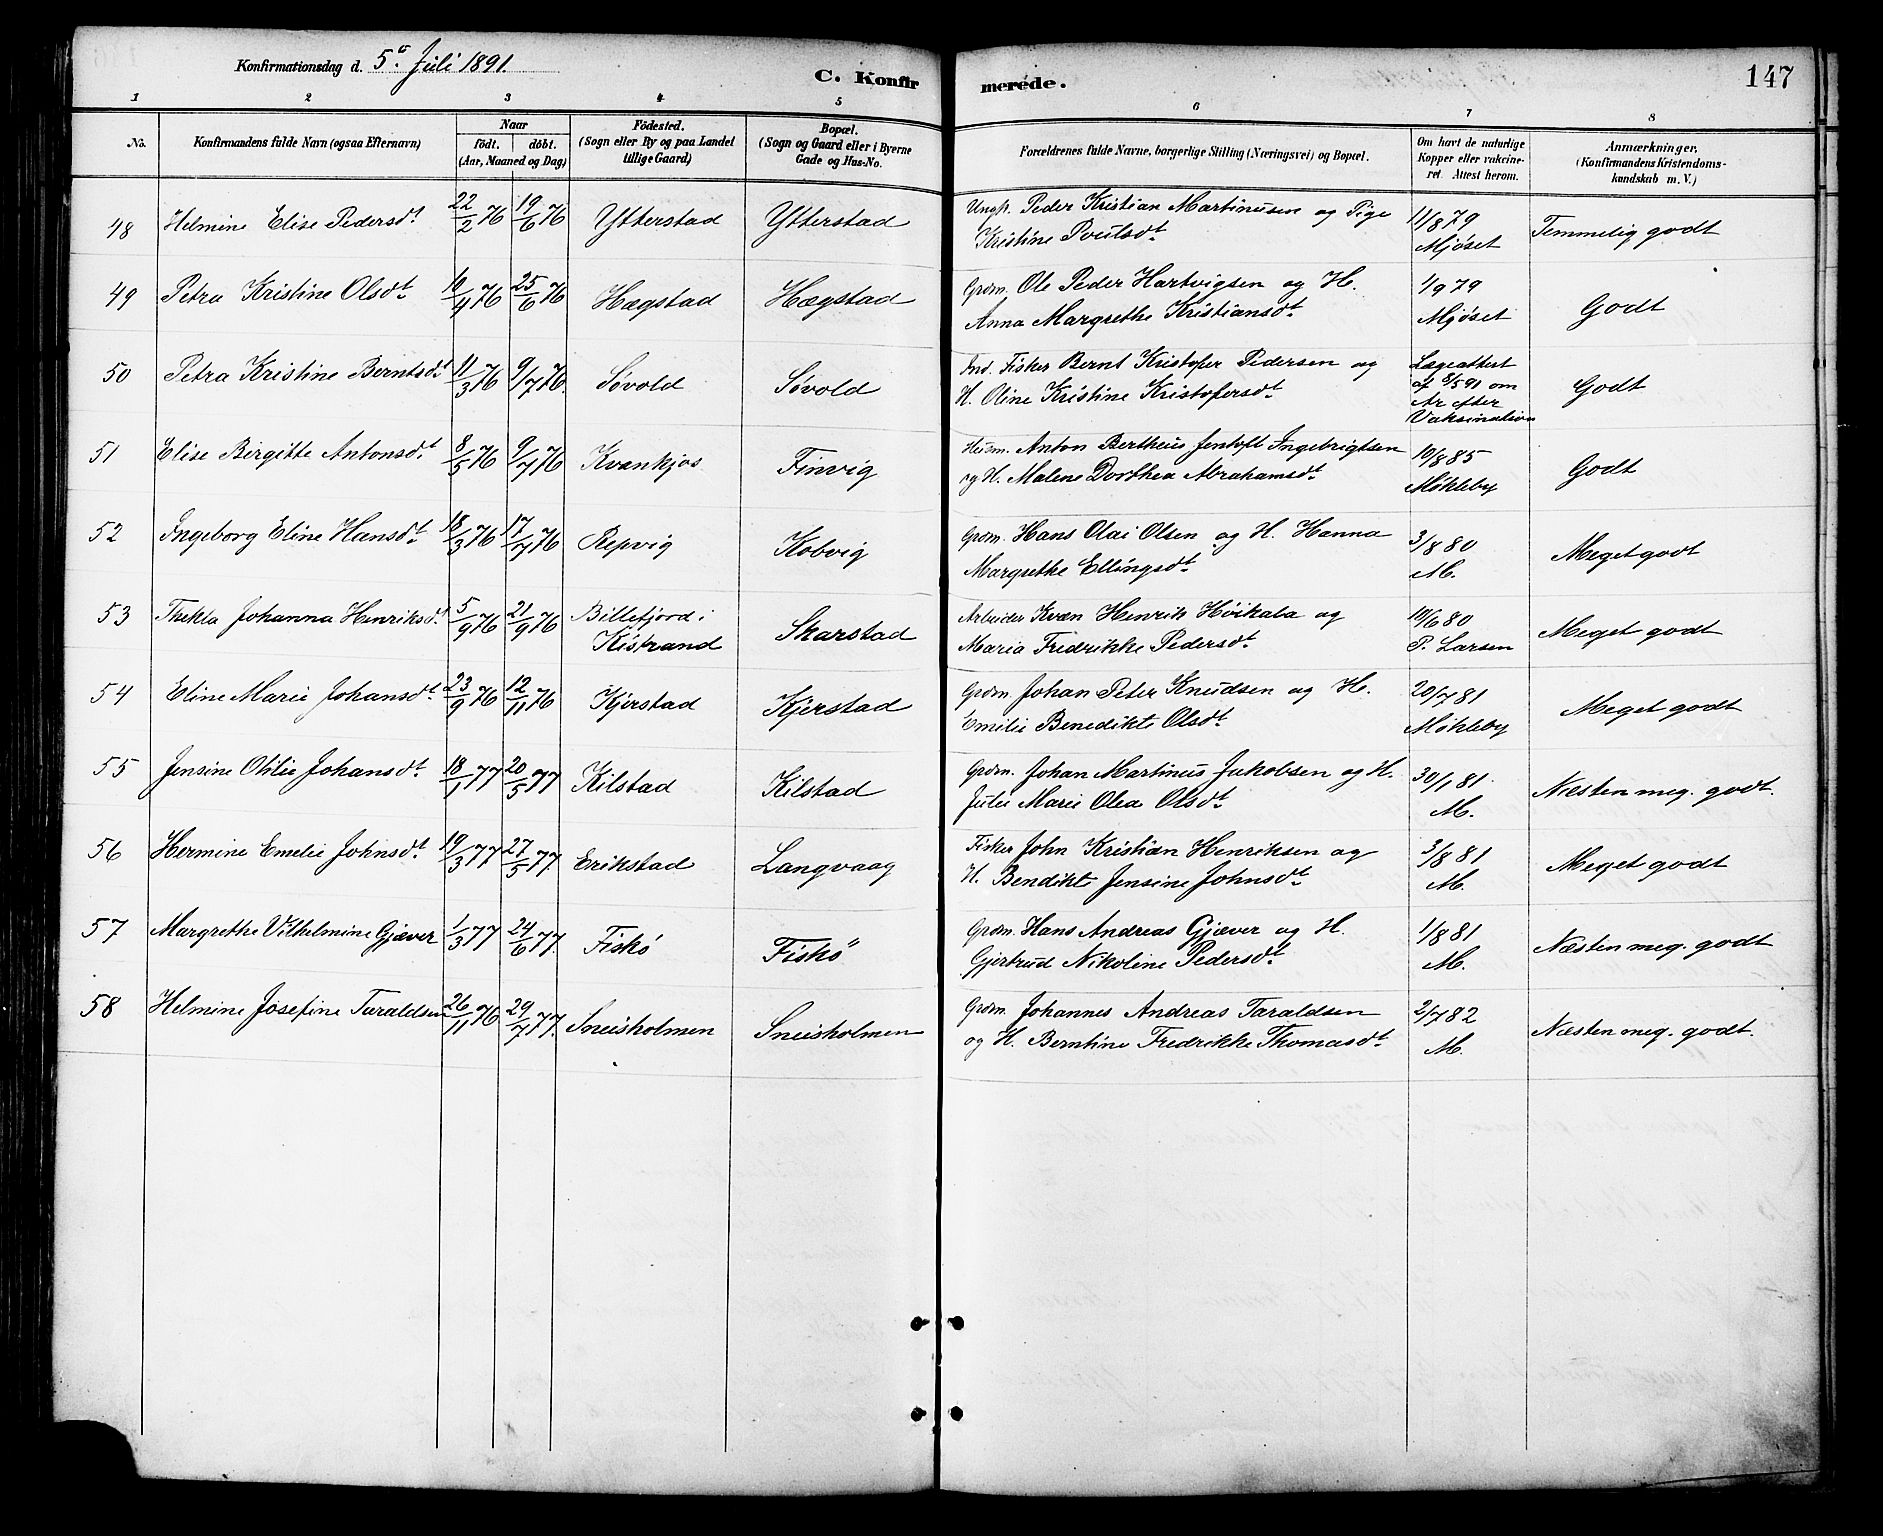 Konfirmationsdag d. 5te Juli 1891.
C. Konfirmerede.
147
1 2 3 4 5 6 7 8
No.
Konfirmandens fulde Navn (ogsaa Efternavn)
Naar
født. døbt.
(Aar, Maaned og Dag)
Fødested.
(Sogn eller By og paa Landet
tillige Gaard)
Bopæl.
(Sogn og Gaard eller i Byerne
Gade og Hus-No.
Forældrenes fulde Navne, borgerlige Stilling (Næringsvei) og Bopæl.
Om havt de naturlige
Kopper eller vakcine-
ret. Attest herom.
Anmærkninger.
(Konfirmandens Kristendoms-
kundskab m. V.)
48 Helmine Elise Pedersdt 22/2 76 19/6 76 Ytterstad Ytterstad Ungk. Peder Kristian Martinusen og Pige 11/8 79 Temmelig godt
Kristine Poulsdt Mjøset
49 Petra Kristine Olsdt. 10/4 76 25/6 76 Hægstad Hægstad Grdm. Ole Peder Hartvigsen og H. 1/9 79 Godt
Anna Margrethe Kristiansdt. Mjøset
50 Petra Kristine Berntsdt. 11/3 76 9/7 76. Søvold Søvold Ind. Fisker Bernt Kristofer Pedersen og Lægeattest Godt
H. Oline Kristine Kristofersdt. af 8/5 91 om
Ar efter
Vaksination
51 Elise Birgitte Antonsdt. 8/5 76 9/7 76 Kvankjos Finvig Husm. Anton Bertheus Jentoft Ingebrigtsen 10/8 85 Godt
og H. Malene Dorthea Abrahamsdt. Møkleby
52 Ingeborg Eline Hansdt. 18/3 76 17/7 76 Repvig Kobvig Grdm. Hans Olai Olsen og H. Hanna 3/8 80 Meget godt
Margrethe Ellingsdt. M.
53 Thekla Johanna Henriksdt. 5/9 76 21/9 76 Billefjord i Skarstad Arbeider Kvæn Henrik Høikala og 10/6 80 Meget godt
Kistrand Maria Fredrikke Pedersdt. P. Larsen
54 Eline Marie Johansdt. 23/9 76 12/11 76 Kjerstad Kjerstad Grdm. Johan Peter Knudsen og H. 20/7 81 Meget godt
Emilie Benedikte Olsdt. Møkleby
55 Jensine Otilie Johansdt. 18/1 77 20/5 77 Kilstad Kilstad Grdm. Johan Martinus Jakobsen og H. 30/1 81. Næsten meg. godt.
Julie Marie Olea Olsdt. M.
56 Hermine Emelie Johnsdt. 19/3 77 27/5 77. Erikstad Langvaag Fisker John Kristian Henriksen og 3/8 81 Meget godt
H. Bendikte Jensine Johnsdt. M.
57 Margrethe Vilhelmine Gjæver 1/3 77 24/6 77. Fiskø Fiskø Grdm. Hans Andreas Gjæver og H. 1/8 81 Næsten meg. godt
Gjertrud Nikoline Pedersdt. M.
58 Helmine Josefine Taraldsen 26/11 76 29/7 77. Sneisholmen Sneisholmen Grdm. Johannes Andreas Taraldsen 2/7 82 Næsten meg. godt.
og H. Berntine Fredrikke Thomasdt. M.